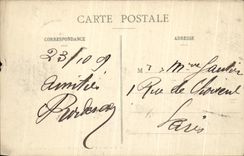 CARTE POSTALE
CORRESPONDANCE
ADRESSE
23/10 09
Amitiés
M
Mme Gautier
1 Rue de Choiseul
Paris